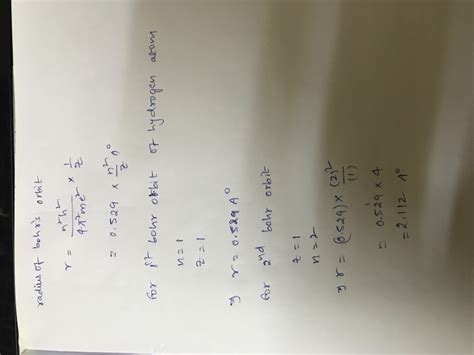 radius of bohr's orbit
r = n²h² / 4π²me² × 1/Z
= 0.529 × n²/Z A°
for 1st bohr orbit of hydrogen atom
n=1
Z=1
⇒ r = 0.529 A°
for 2nd bohr orbit
Z=1
n=2
⇒ r = (0.529) × (2)²/(1)
= 0.529 × 4
= 2.112 A°